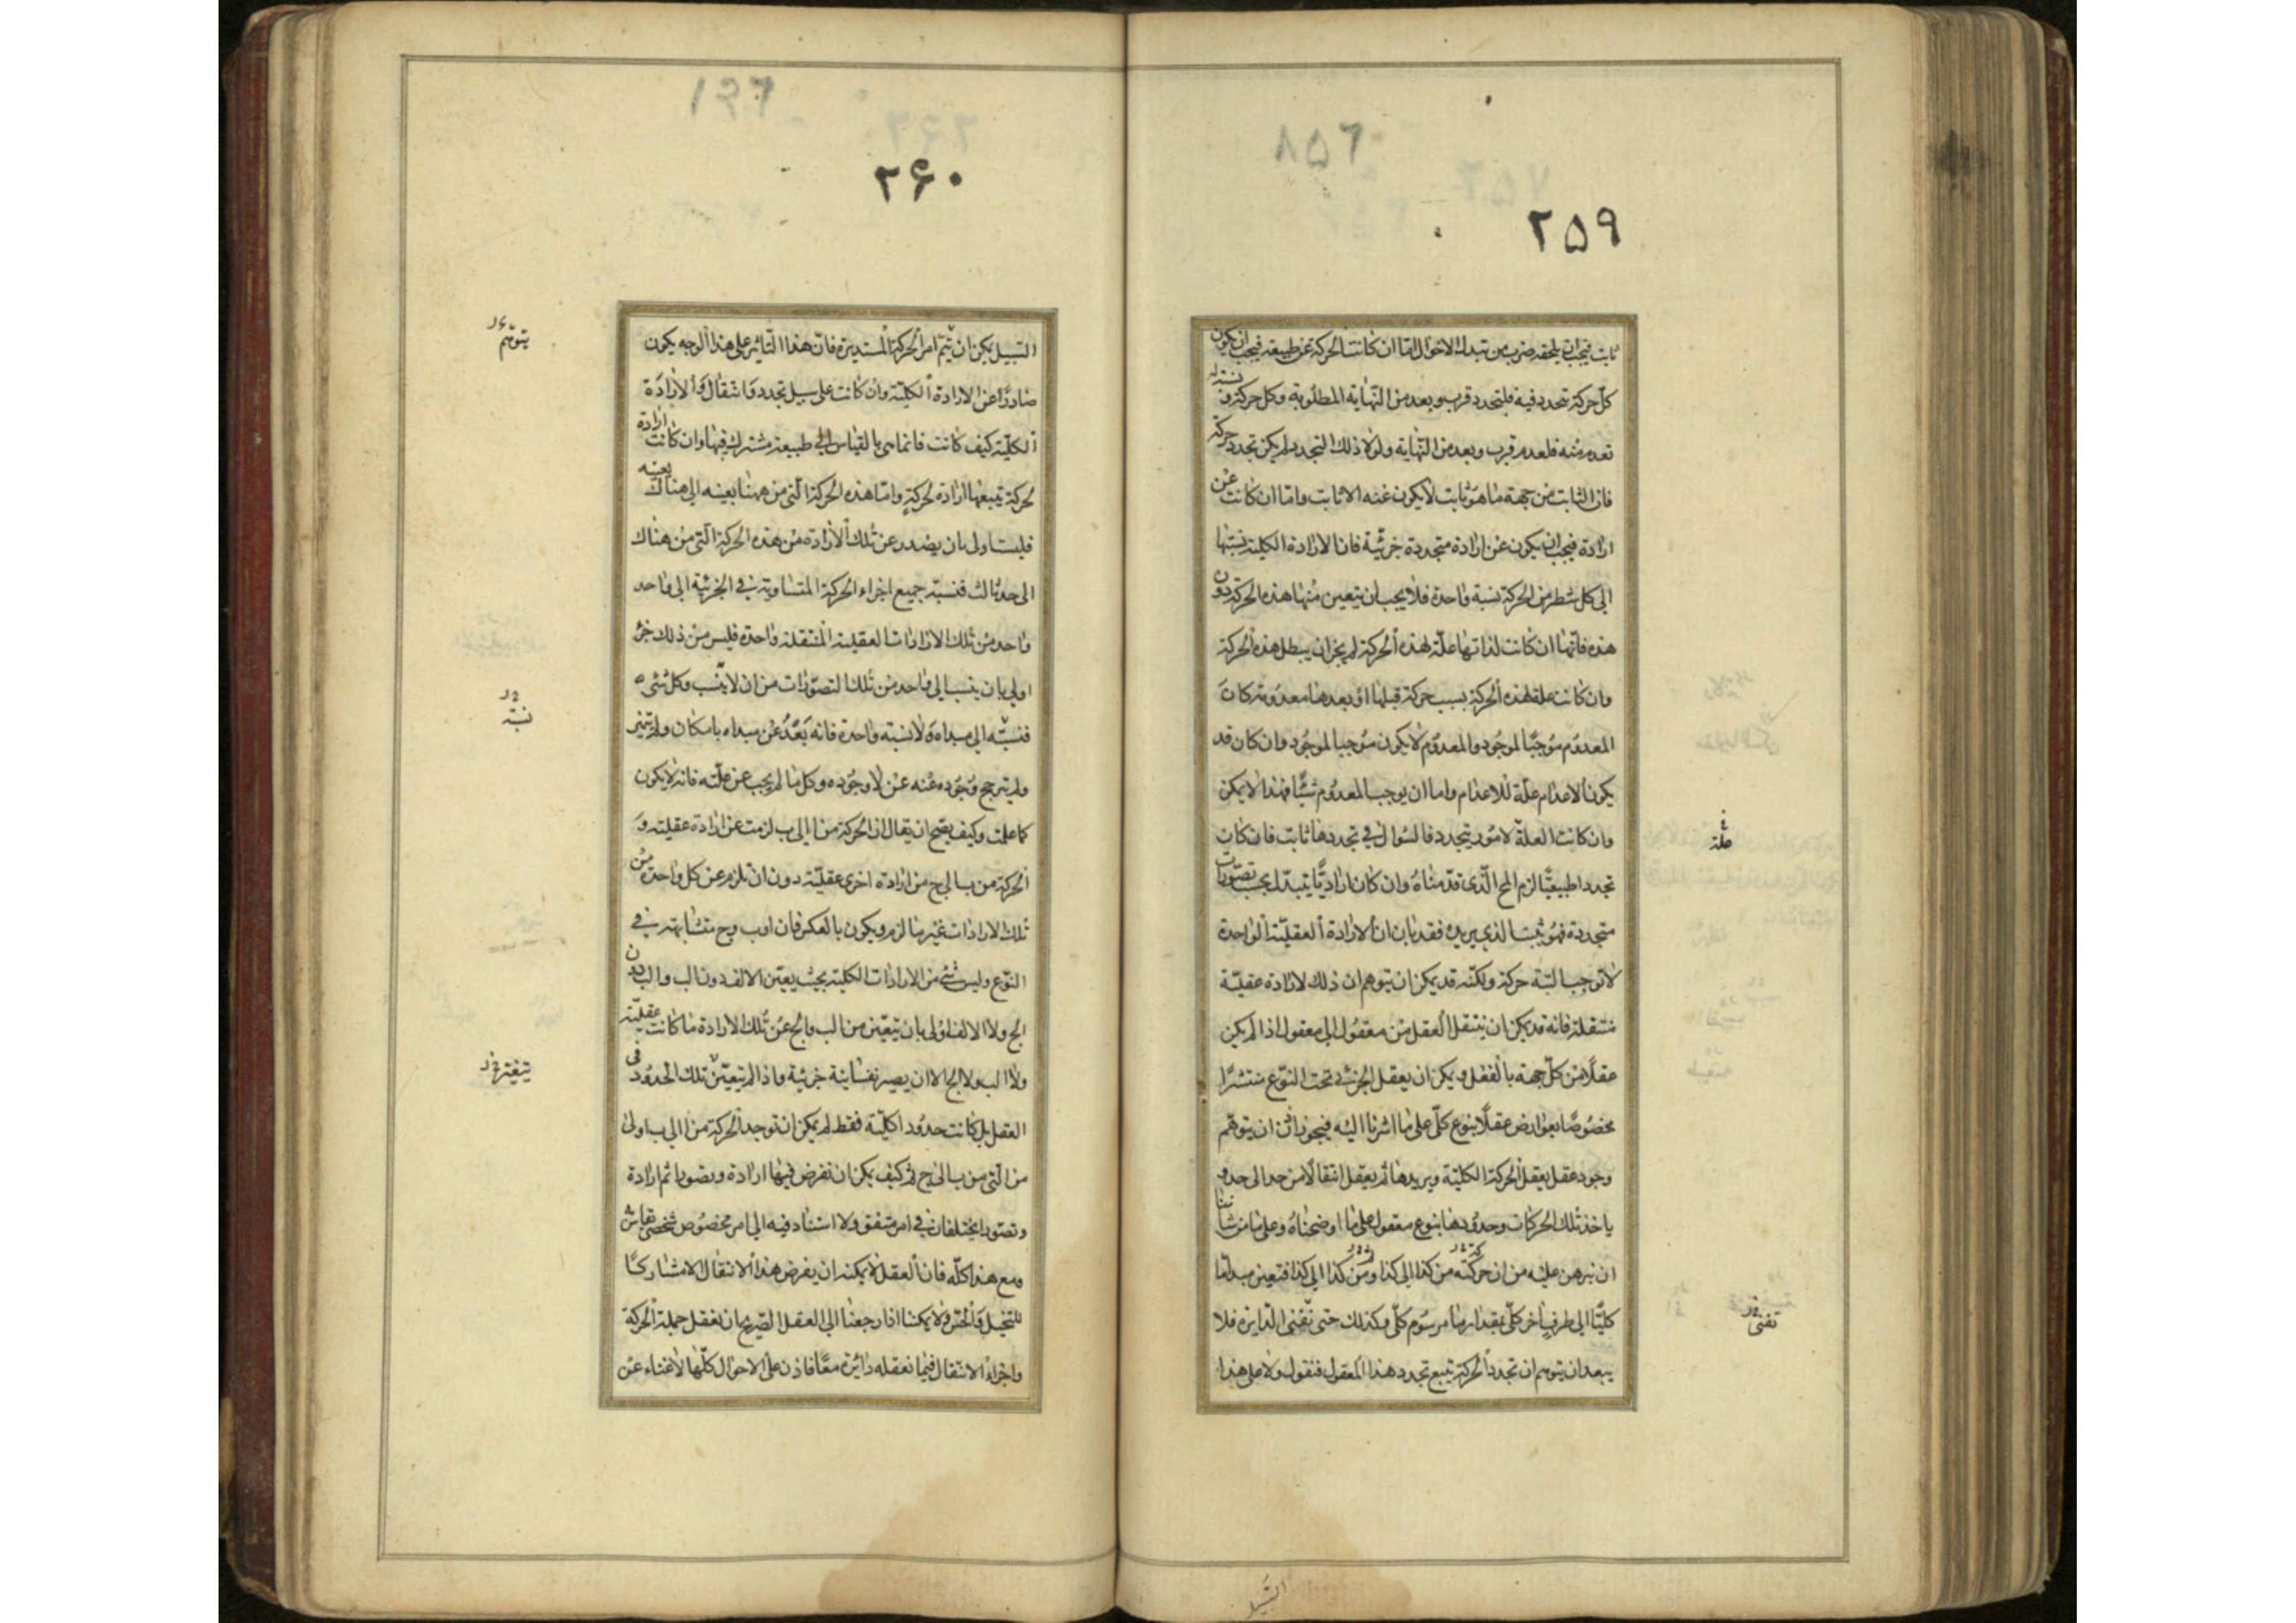 ۲۵۸
۲۵۹
ثابت فيجب ان يلحقه ضرب من تبدل الاحوال اما ان كانت الحركة عن طبيعة فيجب ان يكون
كل حركة تتجدد فيه فلتجدد قرب وبعد من النهاية المطلوبة وكل حركة و
تعدم منه فلعدم قرب وبعد من النهاية ولولا ذلك التجدد لم يكن تجدد حركة
فان الثابت من جهة ما هو ثابت لا يكون عنه الا ثابت واما ان كانت عن
ارادة فيجب ان يكون عن ارادة متجددة جزئية فان الارادة الكلية نسبتها
الى كل شطر من الحركة نسبة واحدة فلا يجب ان يتعين منها هذه الحركة دون
هذه فانها ان كانت لذاتها علة لهذه الحركة لم يجز ان يبطل هذه الحركة
وان كانت علة لهذه الحركة بسبب حركة قبلها او بعدها معدومة كان
المعدوم موجبا لموجود والمعدوم لا يكون موجبا لموجود وان كان قد
يكون الاعدام علة للاعدام واما ان يوجب المعدوم شيئا فهذا لا يمكن
وان كانت العلة لامور يتجدد فالسؤال في تجددها ثابت فان كان
تجددا طبيعيا لزم المح الذى قدمناه وان كان اراديا يتبدل بحسب تصورات
متجددة فهو يثبت الذى يريده فقد بان ان الارادة العقلية الواحدة
لا توجب البتة حركة ولكنه قد يمكن ان يتوهم ان ذلك لارادة عقلية
منتقلة فانه قد يمكن ان ينتقل العقل من معقول الى معقول اذا لم يكن
عقلا من كل جهة بالفعل ويمكن ان يعقل الجزئى تحت النوع منتشرا
مخصوصا بعوارض عقلا بنوع كلى على ما اشرنا اليه فيجوز اذن ان يتوهم
وجود عقل يعقل الحركة الكلية ويريدها ثم يعقل انتقالا من حد الى حد و
ياخذ تلك الحركات وحدودها بنوع معقول على ما اوضحناه وعلى ما من شاننا
ان نبرهن عليه من ان حركته من كذا الى كذا ومن كذا الى كذا فتعين مبدأ ما
كليا الى طرف اخر كلى بمقدار ما مرسوم كلى وكذلك حتى تفنى الدايرة فلا
يبعد ان يتوهم ان تجدد الحركة يتبع تجدد هذا المعقول فنقول ولا على هذا
علة
تفنى
السبيل
۲۶۱
۲۶۰
السبيل يمكن ان يتم امر الحركة المستديرة فان هذا التاثير على هذا الوجه يكون
صادرا عن الارادة الكلية وان كانت على سبيل تجدد وانتقال والارادة
الكلية كيف كانت فانما هى بالقياس الى طبيعة مشترك فيها وان كانت ارادة
لحركة تتبعها ارادة لحركة واما هذه الحركة التى من ههنا بعينه الى هناك بعينه
فليست اولى بان يصدر عن تلك الارادة من هذه الحركة التى من هناك
الى حد ثالث فنسبة جميع اجزاء الحركة المتساوية فى الجزئية الى واحد
واحد من تلك الارادات العقلية المنتقلة واحدة فليس من ذلك جزء
اولى بان ينسب الى واحد من تلك التصورات من ان لا ينسب وكل شىء
فنسبته الى مبداه ولا نسبته واحدة فانه بعد عن مبداه بامكان ولم يتميز
ولم يترجح وجوده عنه عن لا وجوده وكل ما لم يجب عن علته فانه لا يكون
كما علمت وكيف يصح ان يقال ان الحركة من ا الى ب لزمت عن ارادة عقلية و
الحركة من ب الى ج من ارادة اخرى عقلية دون ان تلزم عن كل واحدة من
تلك الارادات غير ما لزم ويكون بالعكس فان ا وب وج متشابهة فى
النوع وليس شى من الارادات الكلية بحيث يعين الالف دون الب والب دون
الج ولا الالف اولى بان يتعين من الب والج عن تلك الارادة ما كانت عقلية
ولا الب ولا الج الا ان يصير نفسانية جزئية واذا لم تتعين تلك الحدود فى
العقل بل كانت حدودا كلية فقط لم يمكن ان توجد الحركة من ا الى ب اولى
من التى من ب الى ج ثم كيف يمكن ان نفرض فيها ارادة وتصورا ثم ارادة
وتصورا يختلفان فى امر متفق ولا استناد فيه الى امر مخصوص شخصى يقاس به
ومع هذا كله فان العقل لا يمكنه ان يفرض هذا الانتقال الا مشاركا
للتخيل والحس ولا يمكننا اذا رجعنا الى العقل الصريح ان نعقل جملة الحركة
واجزاء الانتقال فيما نعقله دائرة معا فاذن على الاحوال كلها لا غناء عن
يتوهم
نسبة